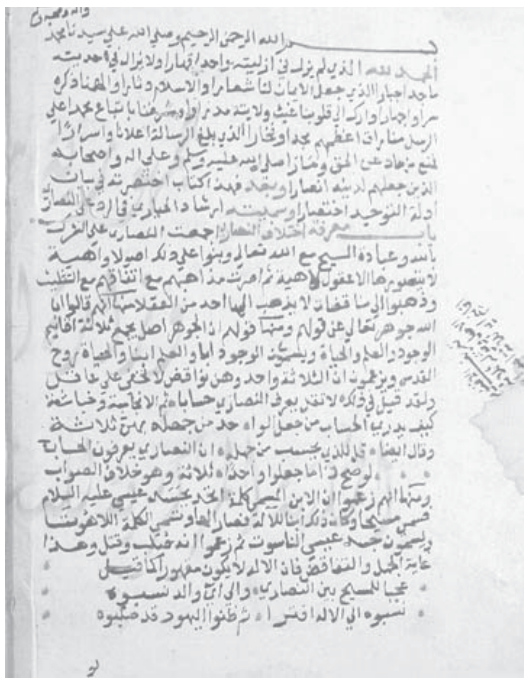 بسم الله الرحمن الرحيم وصلي الله علي سيدنا محمد
الحمد لله الذي لم يزل في ازليته واحدا قهارا ولا يزال في ابديته
ماجدا جبارا الذي جعل الايمان لنا شعارا والاسلام دثارا والهمنا ذكره
سرا واجهارا
الرسل منارا اعظمهم مجدا وفخارا الذي بلغ الرسالة اعلانا واسرارا
عن الحق صلي الله عليه وسلم وعلي اله واصحابه
الذين جعلهم لدينه انصارا وبعد فهذا كتاب اختصرته في بيان
ادلة التوحيد اختصارا وسميته ارشاد الحياري في الرد علي النصاري
باب معرفة اختلاف النصارا اجمعت النصاري علي الشرك
بالله وعبادة المسيح مع الله تعالي وبنوا علي ذلك اصولا واهية
لا يتصورها العقول ثم مذاهبهم مع اتفاقهم مع التثليث
وذهبوا الي مناقضات لا يذهب اليها احد من العقلا منها انهم قالوا ان
الله جوهر تعالي عن قولهم ومنها قولهم ان الجوهر اصل يجمع ثلاثة اقانيم
الوجود والعلم والحياة ويسمون الوجود ابا والعلم ابنا والحياة روح
القدس ويزعمون ان الثلاثة واحد وهذا تناقض لا يخفي علي عاقل
ولقد قيل في ذلك
كيف يدري الحساب من جعل الواحد من جهله ثلاثة
وقال ايضا قل للذي يحسب من جهله ان النصاري يعرفون الحساب
لو صح ذا ما جعلوا واحدا ثلاثة وهو خلاف الصواب
ومنها انهم زعموا ان الابن كلمة اتحد بجسد عيسي عليه السلام
فسمي مسيحا
ويسمون جسد عيسي الناسوت ثم زعموا انه صلب وقتل وهذا
غاية الجهل والتناقض فان الاله لا يكون مقهورا كما قيل
عجبا للمسيح بين النصاري والي اي والد نسبوه
نسبوه الي الاله افترا ثم ظنوا اليهود قد صلبوه